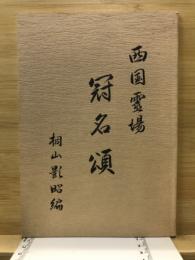 西国霊場
冠名頌
桐山影昭編